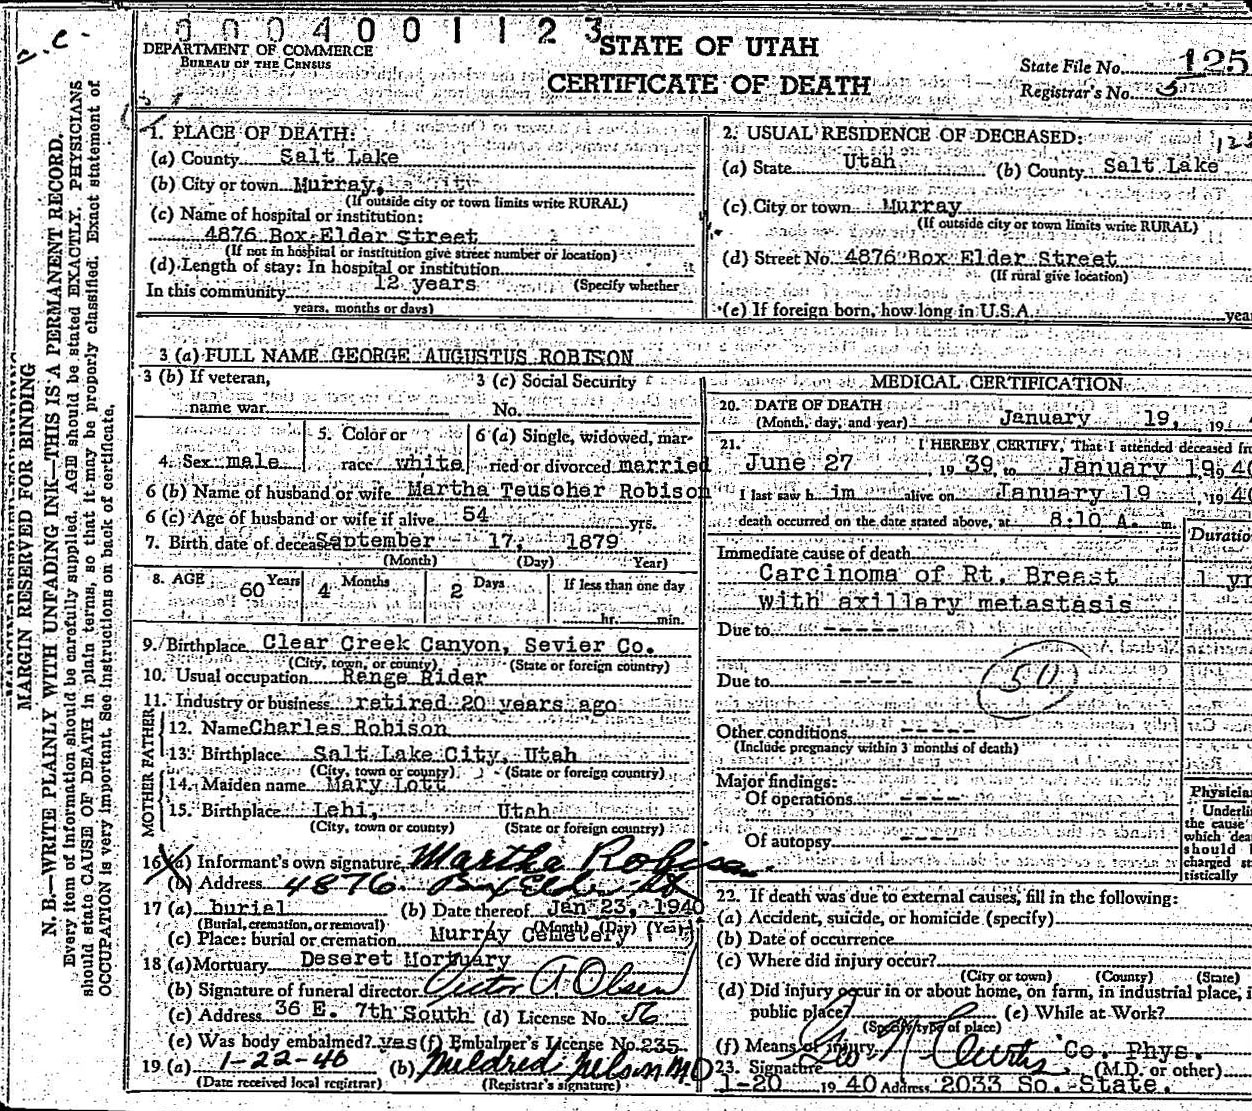 0 0 0 4 0 0 1 1 2 3
DEPARTMENT OF COMMERCE
BUREAU OF THE CENSUS
STATE OF UTAH
CERTIFICATE OF DEATH
State File No. 125
Registrar's No. 3
MARGIN RESERVED FOR BINDING
N. B.—WRITE PLAINLY WITH UNFADING INK—THIS IS A PERMANENT RECORD.
Every item of information should be carefully supplied. AGE should be stated EXACTLY. PHYSICIANS
should state CAUSE OF DEATH in plain terms, so that it may be properly classified. Exact statement of
OCCUPATION is very important. See instructions on back of certificate.
1. PLACE OF DEATH:
(a) County Salt Lake
(b) City or town Murray,
(If outside city or town limits write RURAL)
(c) Name of hospital or institution:
4876 Box Elder Street
(If not in hospital or institution give street number or location)
(d) Length of stay: In hospital or institution
In this community 12 years (Specify whether
years, months or days)
2. USUAL RESIDENCE OF DECEASED:
(a) State Utah (b) County Salt Lake
(c) City or town Murray
(If outside city or town limits write RURAL)
(d) Street No. 4876 Box Elder Street
(If rural give location)
(e) If foreign born, how long in U.S.A. year
3 (a) FULL NAME GEORGE AUGUSTUS ROBISON
3 (b) If veteran,
name war
3 (c) Social Security
No.
4. Sex male
5. Color or
race white
6 (a) Single, widowed, mar-
ried or divorced married
6 (b) Name of husband or wife Martha Teuscher Robison
6 (c) Age of husband or wife if alive 54 yrs.
7. Birth date of deceased September 17, 1879
(Month) (Day) Year)
8. AGE 60 Years 4 Months 2 Days If less than one day
hr. min.
9. Birthplace Clear Creek Canyon, Sevier Co.
(City, town, or county) (State or foreign country)
10. Usual occupation Renge Rider
11. Industry or business retired 20 years ago
FATHER
12. Name Charles Robison
13. Birthplace Salt Lake City, Utah
(City, town or county) (State or foreign country)
MOTHER
14. Maiden name Mary Lott
15. Birthplace Lehi, Utah
(City, town or county) (State or foreign country)
16 (a) Informant's own signature Martha Robison
(b) Address 4876 Box Elder St
17 (a) burial (b) Date thereof Jan 23, 1940
(Burial, cremation, or removal) (Month) (Day) (Year)
(c) Place: burial or cremation Murray Cemetery
18 (a) Mortuary Deseret Mortuary
(b) Signature of funeral director Victor A Olsen
(c) Address 36 E. 7th South (d) License No. 56
(e) Was body embalmed? yes (f) Embalmer's License No. 235
19 (a) 1-22-40 (b) Mildred Nelson MD
(Date received local registrar) (Registrar's signature)
MEDICAL CERTIFICATION
20. DATE OF DEATH
(Month, day, and year) January 19, 19
21. I HEREBY CERTIFY, That I attended deceased from
June 27 1939, to January 19 1940
I last saw him alive on January 19, 1940
death occurred on the date stated above, at 8:10 A. m.
Duration
Immediate cause of death
Carcinoma of Rt. Breast 1 yr
with axillary metastasis
Due to -----
Due to -----
50
Other conditions -----
(Include pregnancy within 3 months of death)
Major findings:
Of operations ----
Of autopsy ----
Physician
Underline
the cause
which death
should
charged sta-
tistically
22. If death was due to external causes, fill in the following:
(a) Accident, suicide, or homicide (specify)
(b) Date of occurrence
(c) Where did injury occur?
(City or town) (County) (State)
(d) Did injury occur in or about home, on farm, in industrial place, i
public place? (e) While at Work?
(Specify type of place)
(f) Means of injury
23. Signature Geo N Curtis Co. Phys.
(M.D. or other)
1-20 1940 Address 2033 So. State.